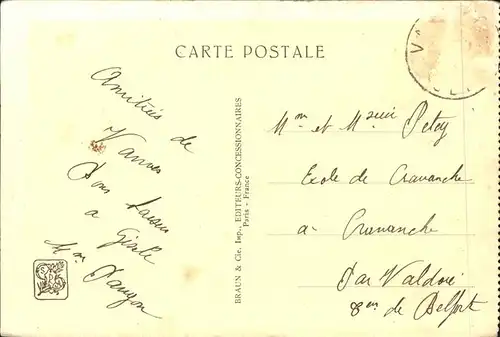 CARTE POSTALE
Amitiés de
Vanves
Bons baisers
a Gisèle
Mme
BRAUN & Cie. Imp., EDITEURS-CONCESSIONNAIRES
Paris - France
Mme et Petey
Ecole de Cravanche
a Cravanche
Par Valdoie
de Belfort